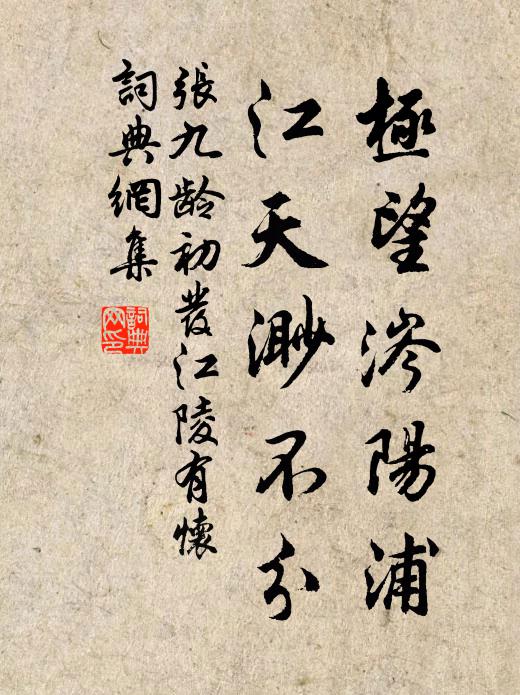 極望涔陽浦
江天渺不分
張九齡初發江陵有懷
詞典網集
詞典網印